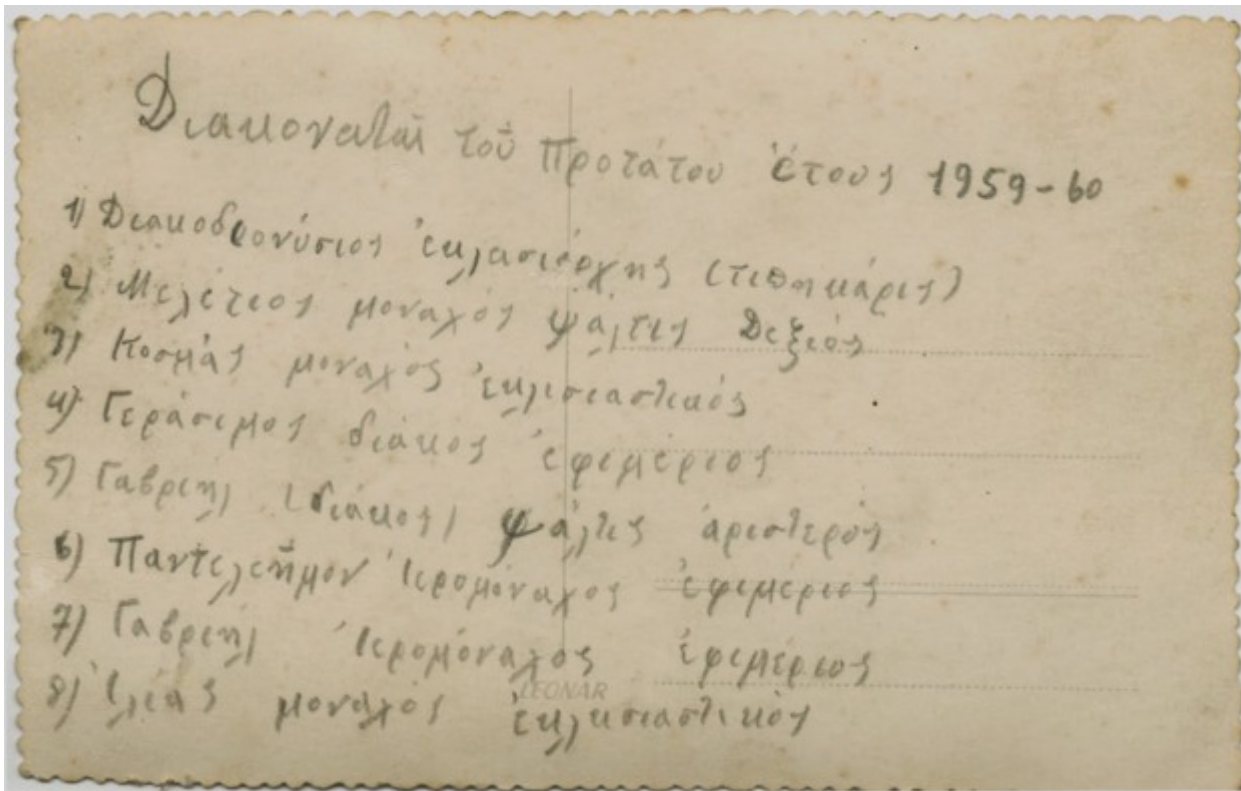 Διακονεταὶ τοῦ Προτάτου ἔτους 1959-60
1) Διακοδιονύσιος ἐκλασιάρχης (τιπηκάρις)
2) Μελέτιος μοναχός ψάλτις Δεξιός
3) Κοσμάς μοναχὸς ἐκλισιαστικός
4) Γεράσιμος διάκος ἐφιμέριος
5) Γαβριήλ (διάκος) ψάλτις ἀριστερός
6) Παντελεήμον ἱερομόναχος ἐφιμέριος
7) Γαβριήλ ἱερομόναχος ἐφιμέριος
LEONAR
8) Ἰλίας μοναχός ἐκλισιαστικός